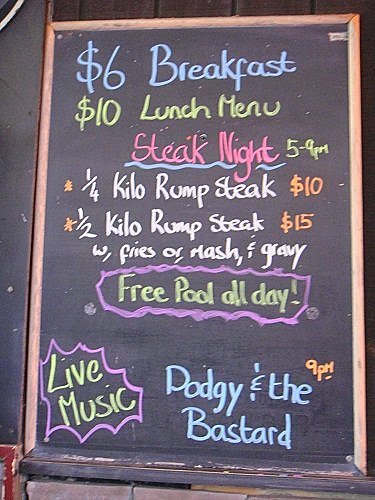 $6 Breakfast
$10 Lunch Menu
Steak Night 5-9pm
* 1/4 Kilo Rump Steak $10
* 1/2 Kilo Rump Steak $15
w, fries or Mash, & gravy
Free Pool all day!
Live Music
9pm
Dodgy & the
Bastard